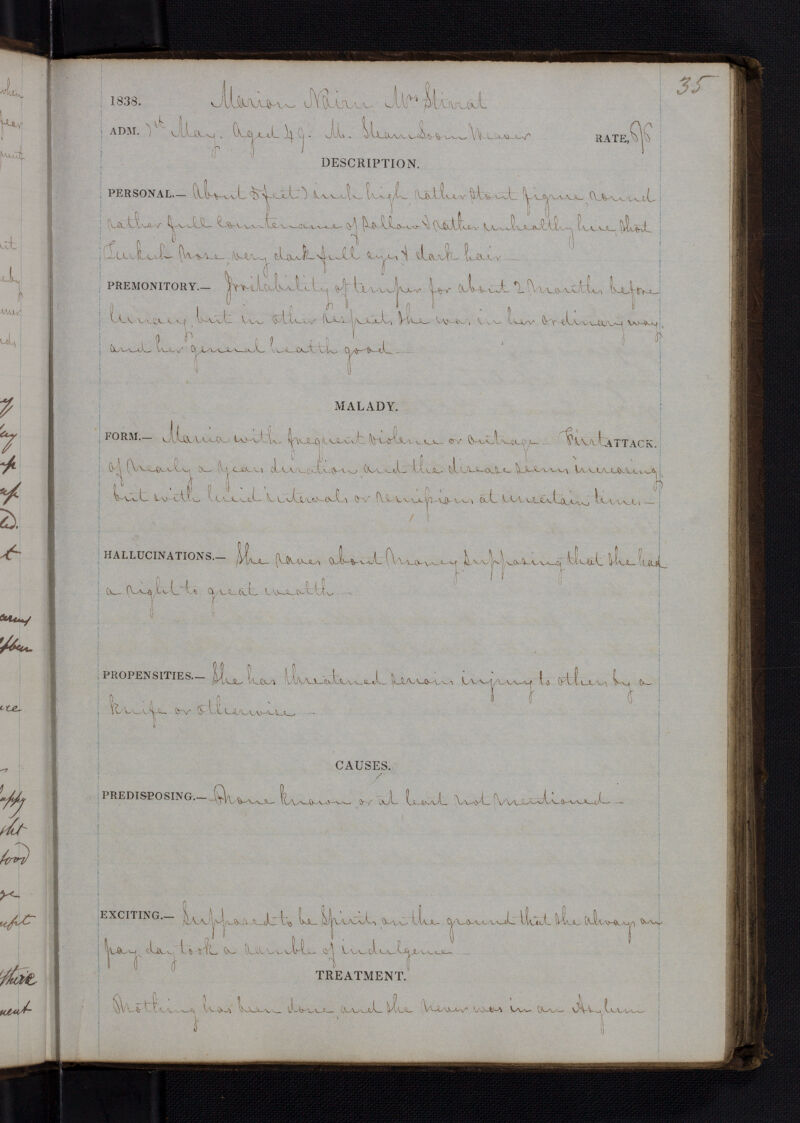 35
1838. Marion Nairn Mrs Stirrat
ADM. 7th May. Aged 49. M. Steam Loom Weaver RATE, 8/6
DESCRIPTION.
PERSONAL.— About 5 feet 1 inch high rather Stout figure, round
rather full Countenance of Sallow & rather unhealthy hue, Short
Turkish Nose, very dark full eyes & dark hair
PREMONITORY.— Irritability of temper for about 2 Months before
lunacy, but in other respects She was in her ordinary way,
and her general health good —
MALADY.
FORM.— Mania with frequent Violence or outrage First ATTACK.
of Nearly a years duration and the disease seems increasing,
but with lucid intervals or remissions at uncertain times —
HALLUCINATIONS.— She raves about Money Supposing that She had
a right to great wealth —
PROPENSITIES.— She has threatened serious injury to others by a
Knife or otherwise —
CAUSES.
PREDISPOSING.— None Known or at least Not Mentioned —
EXCITING.— Supposed to be Spirits on the ground that She always on
pay day took a ramble of indulgence
TREATMENT.
Nothing has been done, and She Never was in an Asylum
when
year
it
up
up
t